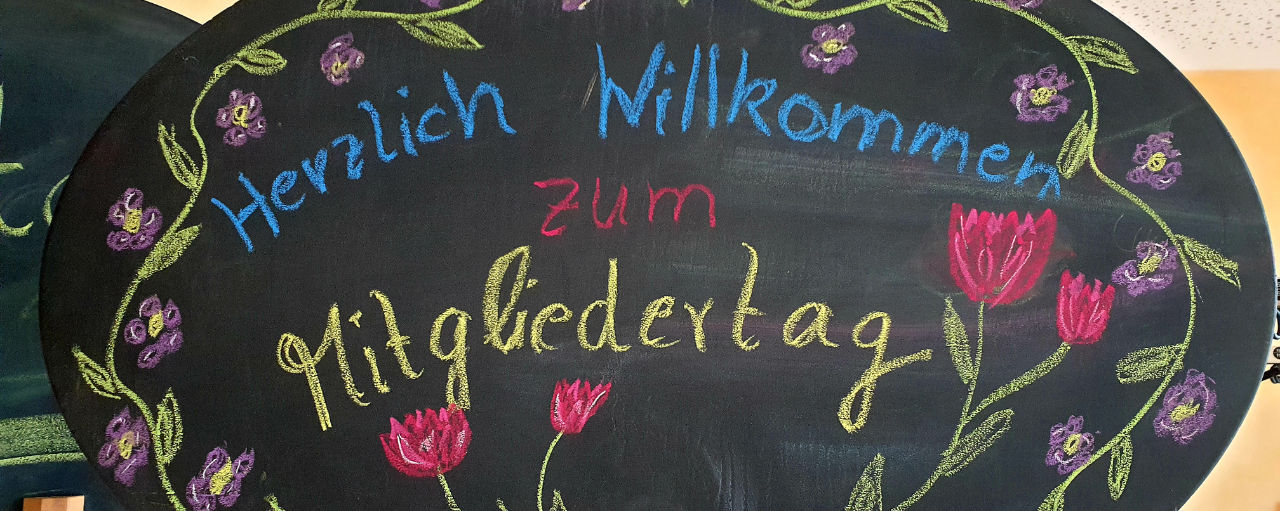 Herzlich Willkommen
zum
Mitgliedertag